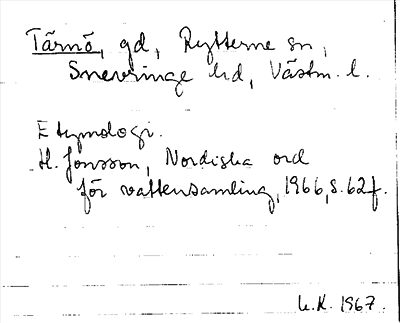 Tärnö, gd, Rytterne sn,
Snevringe hd, Västm. l.
Etymologi.
H. Jonsson, Nordiska ord
för vattensamling, 1966, s. 62f.
L.K. 1967.